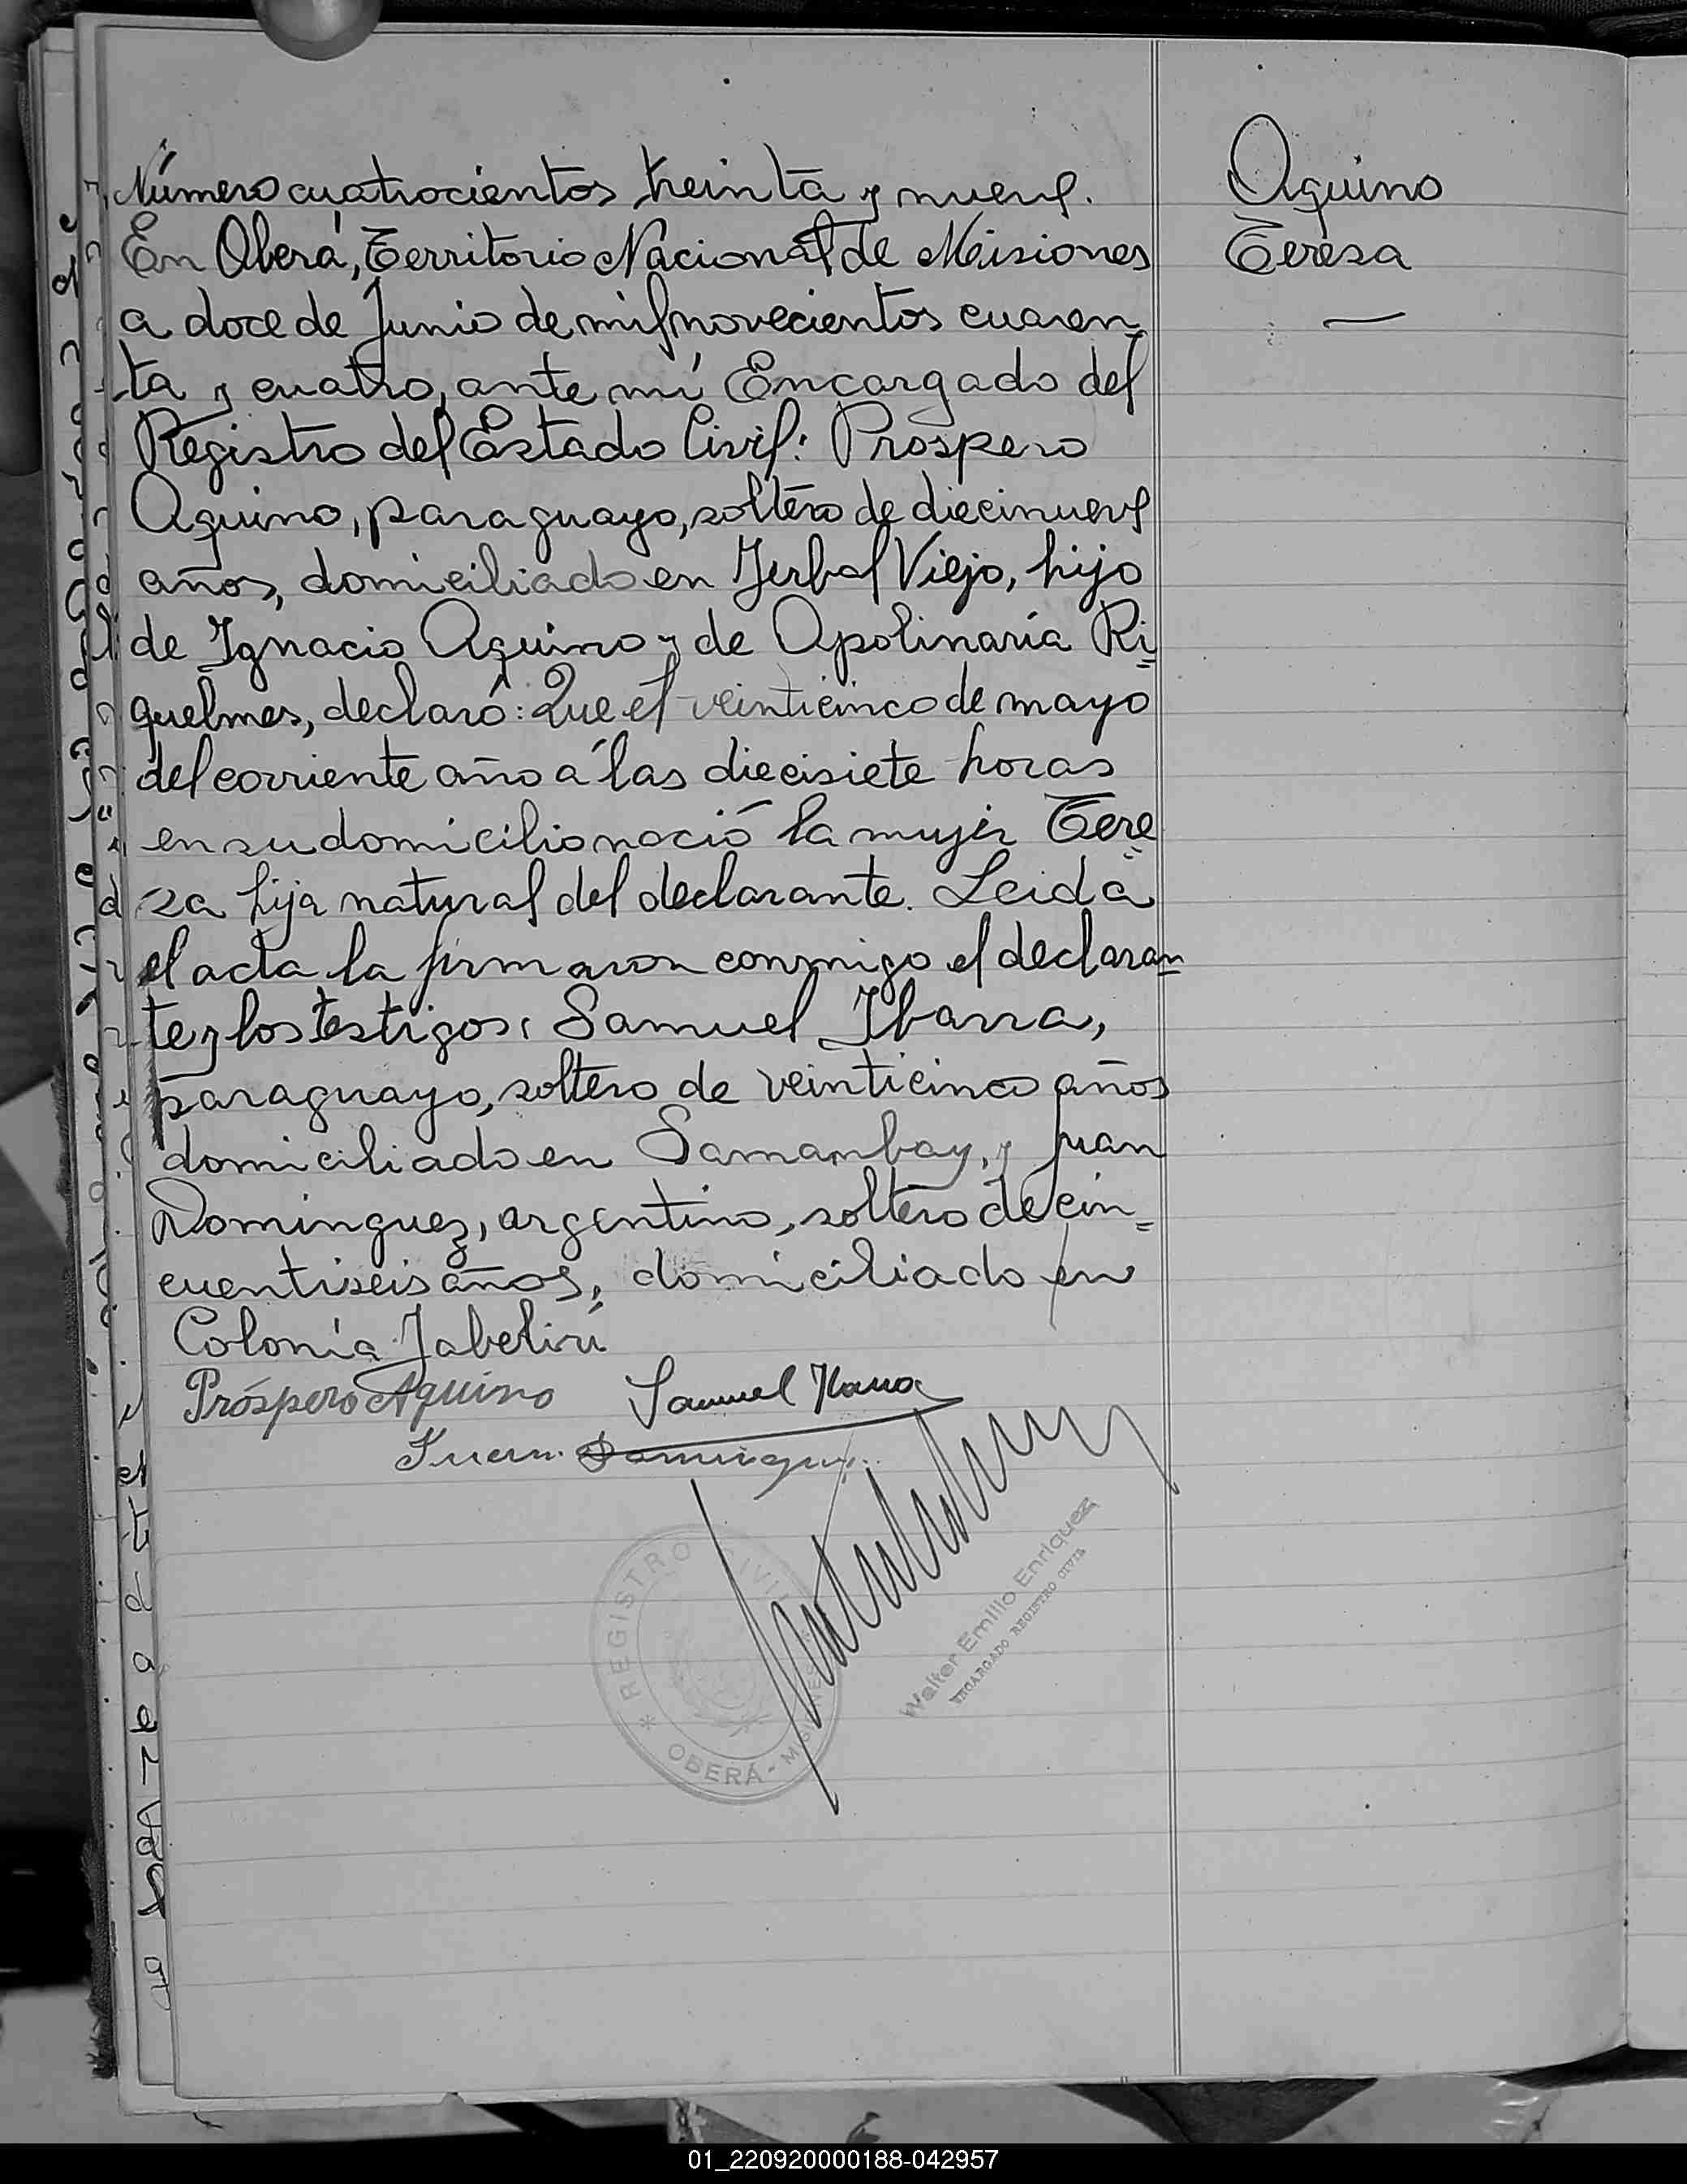 Número cuatrocientos treinta y nueve.
En Oberá, Territorio Nacional de Misiones
a doce de Junio de mil novecientos cuaren-
ta y cuatro, ante mí Encargado del
Registro del Estado Civil: Prospero
Aquino, paraguayo, soltero de diecinueve
años, domiciliado en Yerbal Viejo, hijo
de Ignacio Aquino y de Apolinaria Ri-
quelmes, declaró: Que el veinticinco de mayo
del corriente año a las diecisiete horas
en su domicilio nació la mujer Tere
sa hija natural del declarante. Leida
el acta la firmaron conmigo el declaran-
te y los testigos: Samuel Ibarra,
paraguayo, soltero de veinticinco años
domiciliado en Samambay, y Juan
Dominguez, argentino, soltero de cin-
cuentiseis años, domiciliado en
Colonia Yabebirí
Próspero Aquino Samuel Ibarra
Juan Dominguez
Aquino
Teresa
REGISTRO CIVIL
OBERÁ - MISIONES
Walter Emilio Enriquez
ENCARGADO REGISTRO CIVIL
01_220920000188-042957